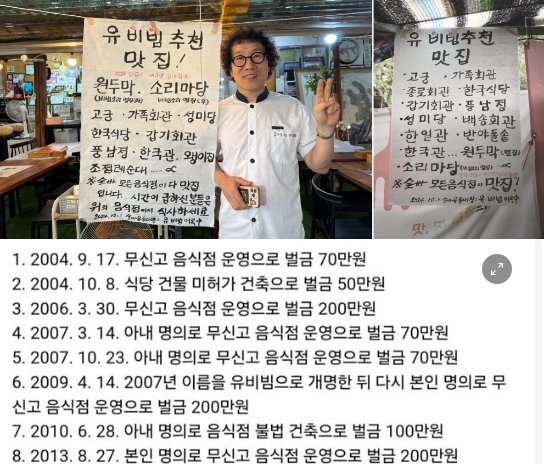 유비빔추천
맛집!
원두막. 소리마당
고궁 · 가족회관 · 성미당
한국식당 · 갑기회관
풍남정 · 한국관. 왱이집
조점례순대 ... ∝
※ 전부 모든음식점이 다 맛집
입니다. 시간이 급하신분들은
위의 음식점에서 식사하세요
2024. 10. 1
유비빔추천
맛집
· 고궁 · 가족회관
· 종로회관 · 한국식당
· 갑기회관 · 풍남정
· 성미당 · 배송회관
· 한일관 · 반야돌솥
· 한국관 ... 원두막
· 소리마당 ... ∝
모든음식점이 맛집!
2024. 10. 1
1. 2004. 9. 17. 무신고 음식점 운영으로 벌금 70만원
2. 2004. 10. 8. 식당 건물 미허가 건축으로 벌금 50만원
3. 2006. 3. 30. 무신고 음식점 운영으로 벌금 200만원
4. 2007. 3. 14. 아내 명의로 무신고 음식점 운영으로 벌금 70만원
5. 2007. 10. 23. 아내 명의로 무신고 음식점 운영으로 벌금 70만원
6. 2009. 4. 14. 2007년 이름을 유비빔으로 개명한 뒤 다시 본인 명의로 무
신고 음식점 운영으로 벌금 200만원
7. 2010. 6. 28. 아내 명의로 음식점 불법 건축으로 벌금 100만원
8. 2013. 8. 27. 본인 명의로 무신고 음식점 운영으로 벌금 200만원